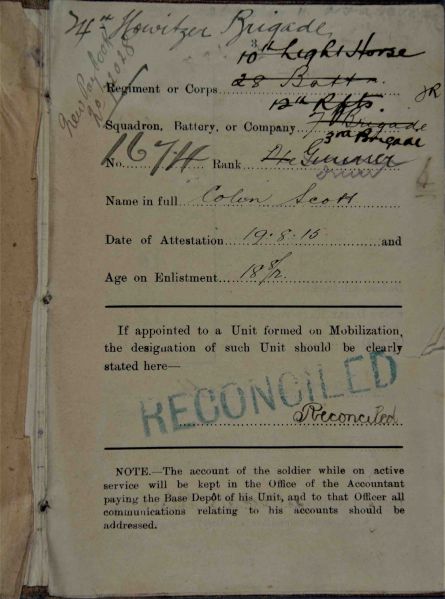 4th Howitzer Brigade
New Paybook
10th Light Horse
Regiment or Corps 28 Batt.
12th Rfts
Squadron, Battery, or Company Brigade
3rd Brigade
No. 1674 Rank Gunner
Name in full Colin Scott
Date of Attestation 19.8.15 and
Age on Enlistment 18
If appointed to a Unit formed on Mobilization,
the designation of such Unit should be clearly
stated here—
RECONCILED
Reconciled
NOTE.—The account of the soldier while on active
service will be kept in the Office of the Accountant
paying the Base Depôt of his Unit, and to that Officer all
communications relating to his accounts should be
addressed.